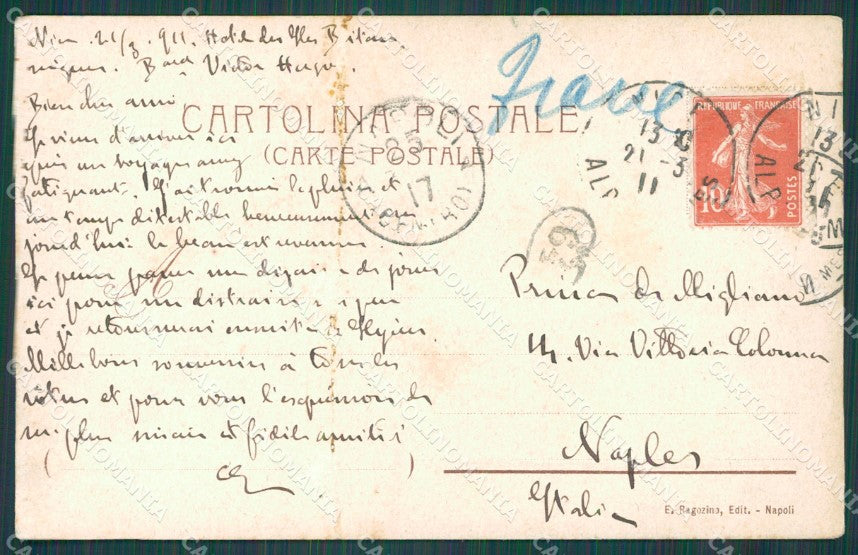 Nice. 21/3. 911. Hotel des Iles Britan
niques. Bard Victor Hugo.
CARTOLINA POSTALE
(CARTE POSTALE)
Bien cher ami
Je viens d'arriver ici
après un voyage assez
fatigant. J'ai trouvé la pluie et
un temps détestable heureusement au
jourd'hui le beau est revenu.
Je pense passer une dizaine de jours
ici pour me distraire un peu
et je retournerai ensuite à
Mille bons souvenirs à tous les
vôtres et pour vous l'expression de
ma plus sincère et fidèle amitié
REPUBLIQUE FRANÇAISE
10
POSTES
13
21-3
11
ALP
17
de Migliano
Via Vittoria Colonna
Naples
Italia
E. Ragozino, Edit. - Napoli
CARTOLINOMANIA